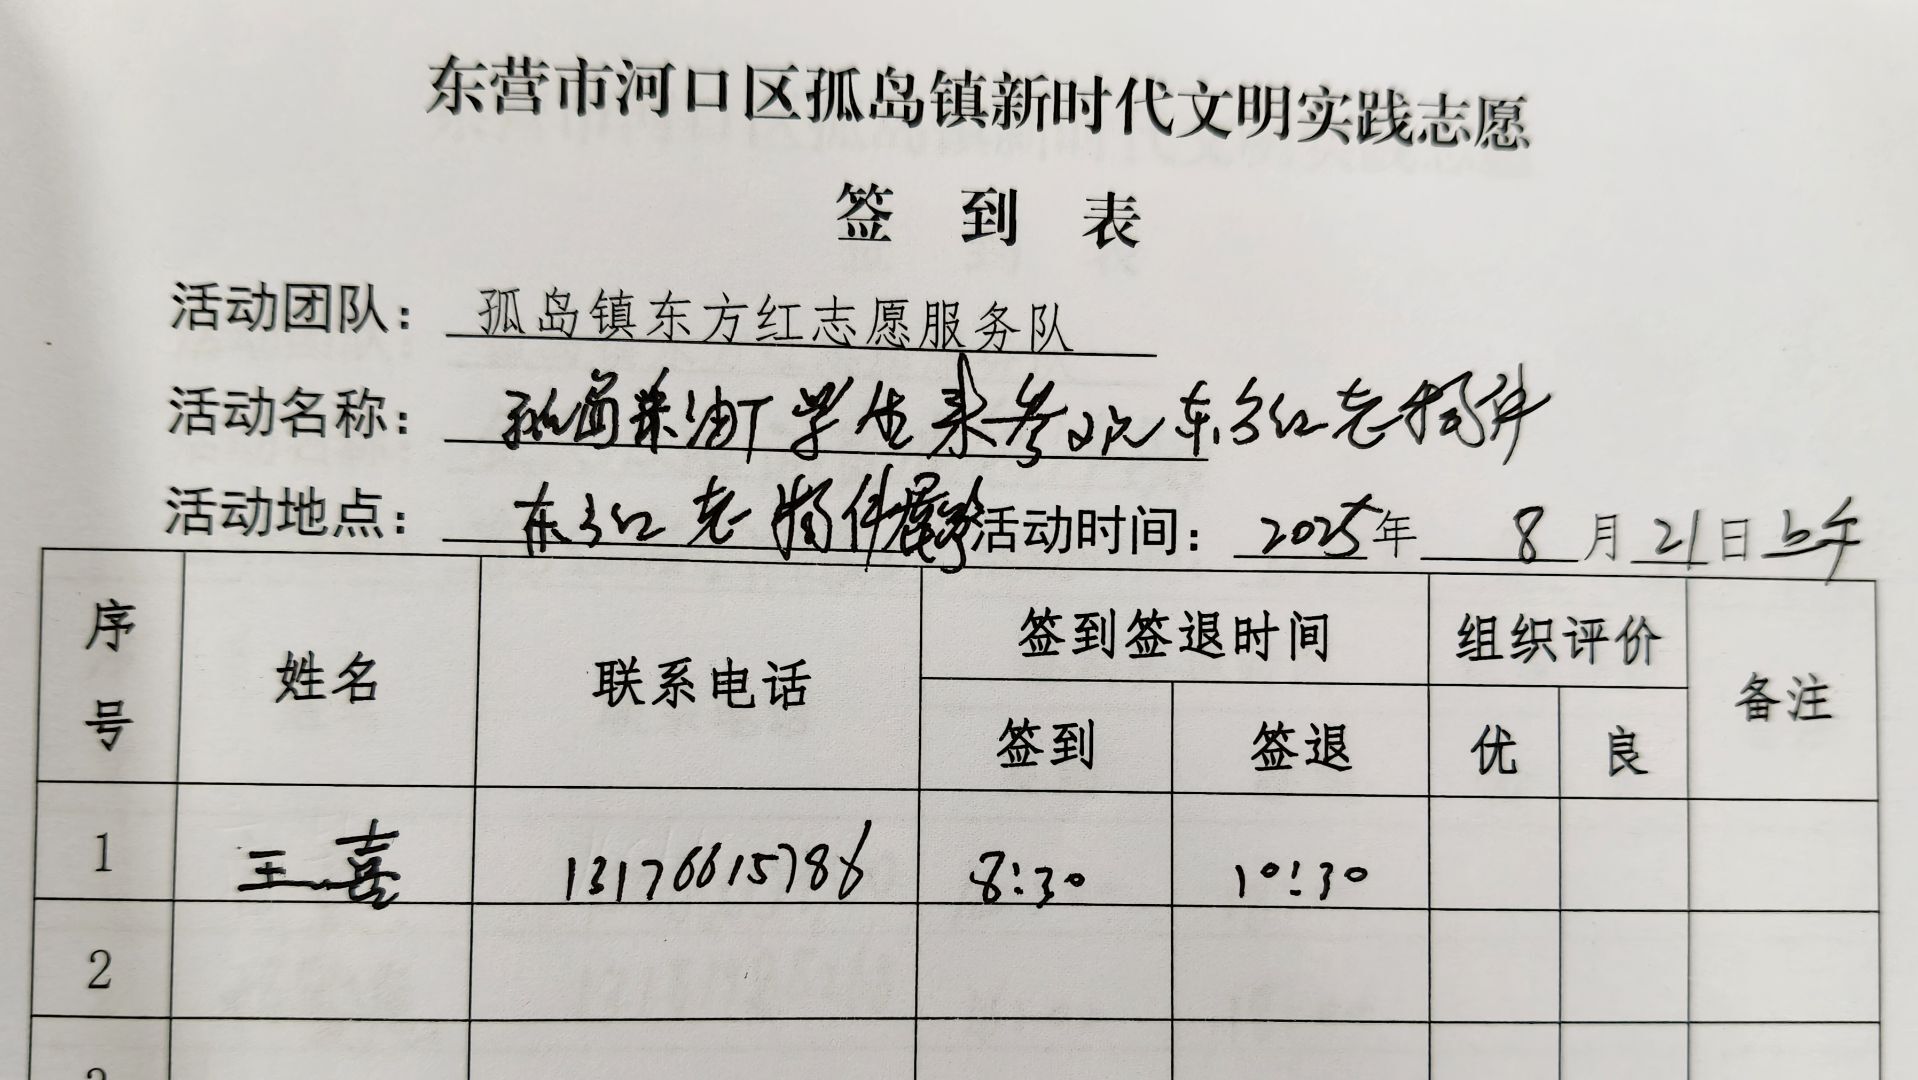 东营市河口区孤岛镇新时代文明实践志愿
签 到 表
活动团队：孤岛镇东方红志愿服务队
活动名称：孤岛采油厂学生来参观东方红老物件
活动地点：东方红老物件展馆 活动时间：2025年 8月21日上午
序号 姓名 联系电话 签到签退时间 组织评价 备注
签到 签退 优 良
1 王喜 13176615786 8:30 10:30
2
3